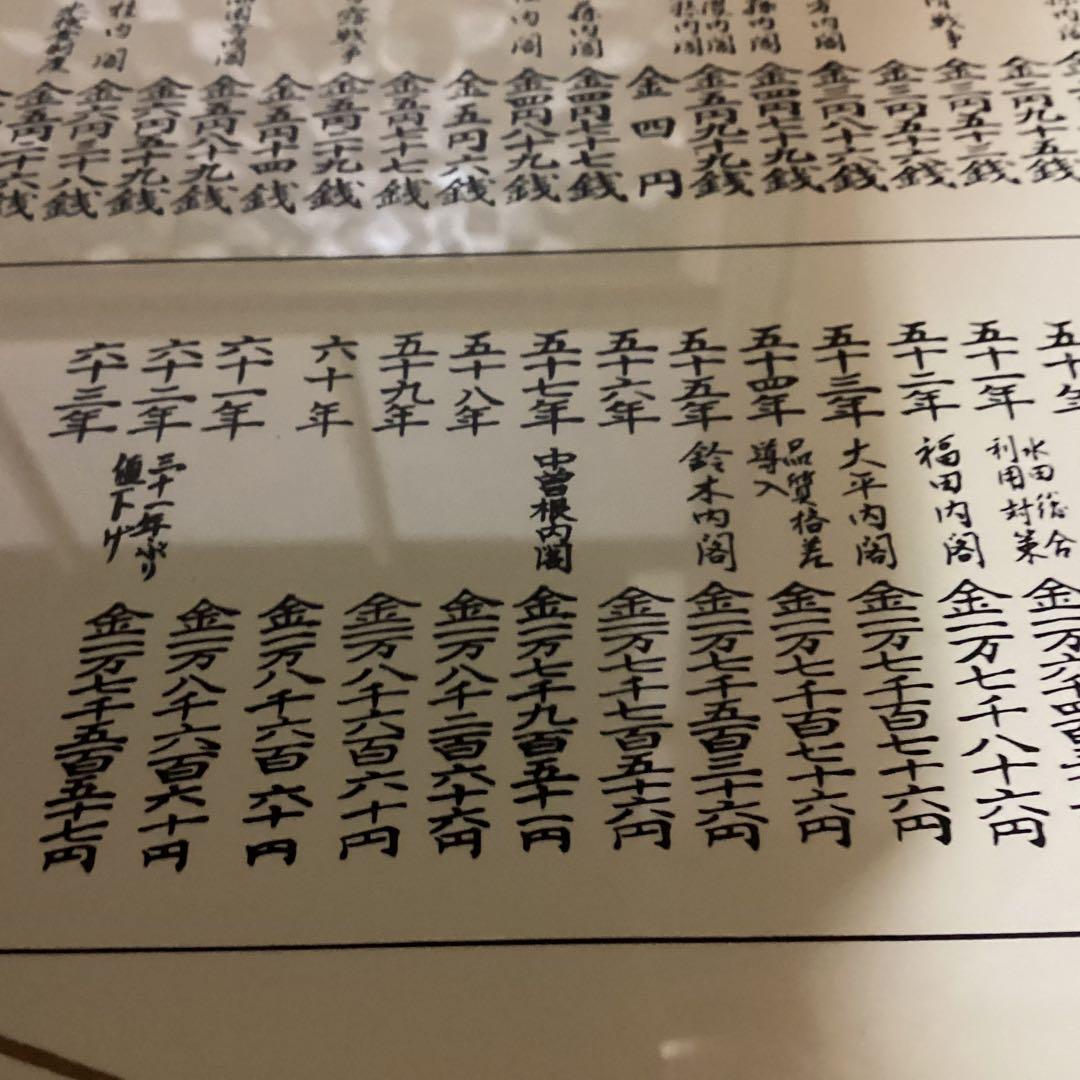 金二円九十五銭
金三円五十三銭
金三円五十六銭
金三円八十六銭
金四円七十九銭
金五円九十九銭
金四円
金四円七十七銭
金四円八十九銭
金五円六銭
金五円七十七銭
金五円二十九銭
金五円十四銭
金五円八十九銭
金六円五十九銭
金六円三十八銭
金五円二十六銭
五十年
五十一年 水田総合
利用対策 金一万六千四百三十
五十二年 福田内閣 金一万七千八十六円
五十三年 大平内閣 金一万七千百七十六円
五十四年 品質格差
導入 金一万七千百七十六円
五十五年 鈴木内閣 金一万七千五百三十六円
五十六年 金一万七千七百五十六円
五十七年 中曽根内閣 金一万七千九百五十一円
五十八年 金一万八千二百六十六円
五十九年 金一万八千六百六十円
六十年 金一万八千六百六十円
六十一年 金一万八千六百六十円
六十二年 三十一年ぶり
値下げ 金一万七千五百五十七円
六十三年